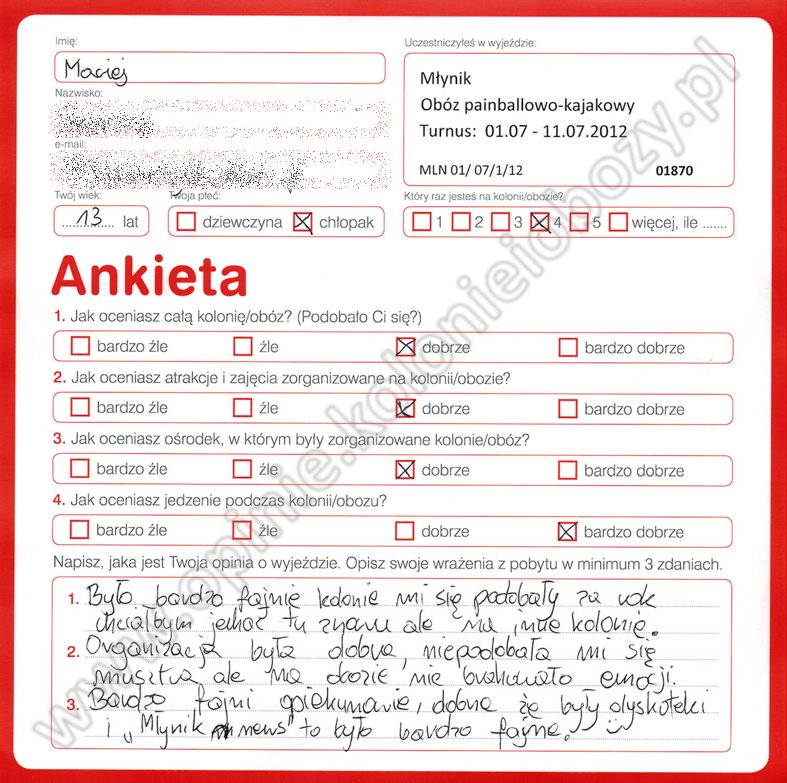 Imię:
Maciej
Nazwisko:
e-mail:
Twój wiek:
13 lat
Twoja płeć:
dziewczyna chłopak
Uczestniczyłeś w wyjeździe:
Młynik
Obóz painballowo-kajakowy
Turnus: 01.07 - 11.07.2012
MLN 01/ 07/1/12 01870
Który raz jesteś na kolonii/obozie?
1 2 3 4 5 więcej, ile .......
Ankieta
1. Jak oceniasz całą kolonię/obóz? (Podobało Ci się?)
bardzo źle źle dobrze bardzo dobrze
2. Jak oceniasz atrakcje i zajęcia zorganizowane na kolonii/obozie?
bardzo źle źle dobrze bardzo dobrze
3. Jak oceniasz ośrodek, w którym były zorganizowane kolonie/obóz?
bardzo źle źle dobrze bardzo dobrze
4. Jak oceniasz jedzenie podczas kolonii/obozu?
bardzo źle źle dobrze bardzo dobrze
Napisz, jaka jest Twoja opinia o wyjeździe. Opisz swoje wrażenia z pobytu w minimum 3 zdaniach.
1. Było bardzo fajnie kolonie mi się podobały za rok
chciałbym jechać tu znowu ale na inne kolonie.
2. Organizacja była dobra, niepodobała mi się
musztra ale na drozie nie brakowało emocji.
3. Bardzo fajni opiekunowie, dobrze że były dyskoteki
i „Młynik news" to było bardzo fajne.
www.opinie.kolonieiobozy.pl